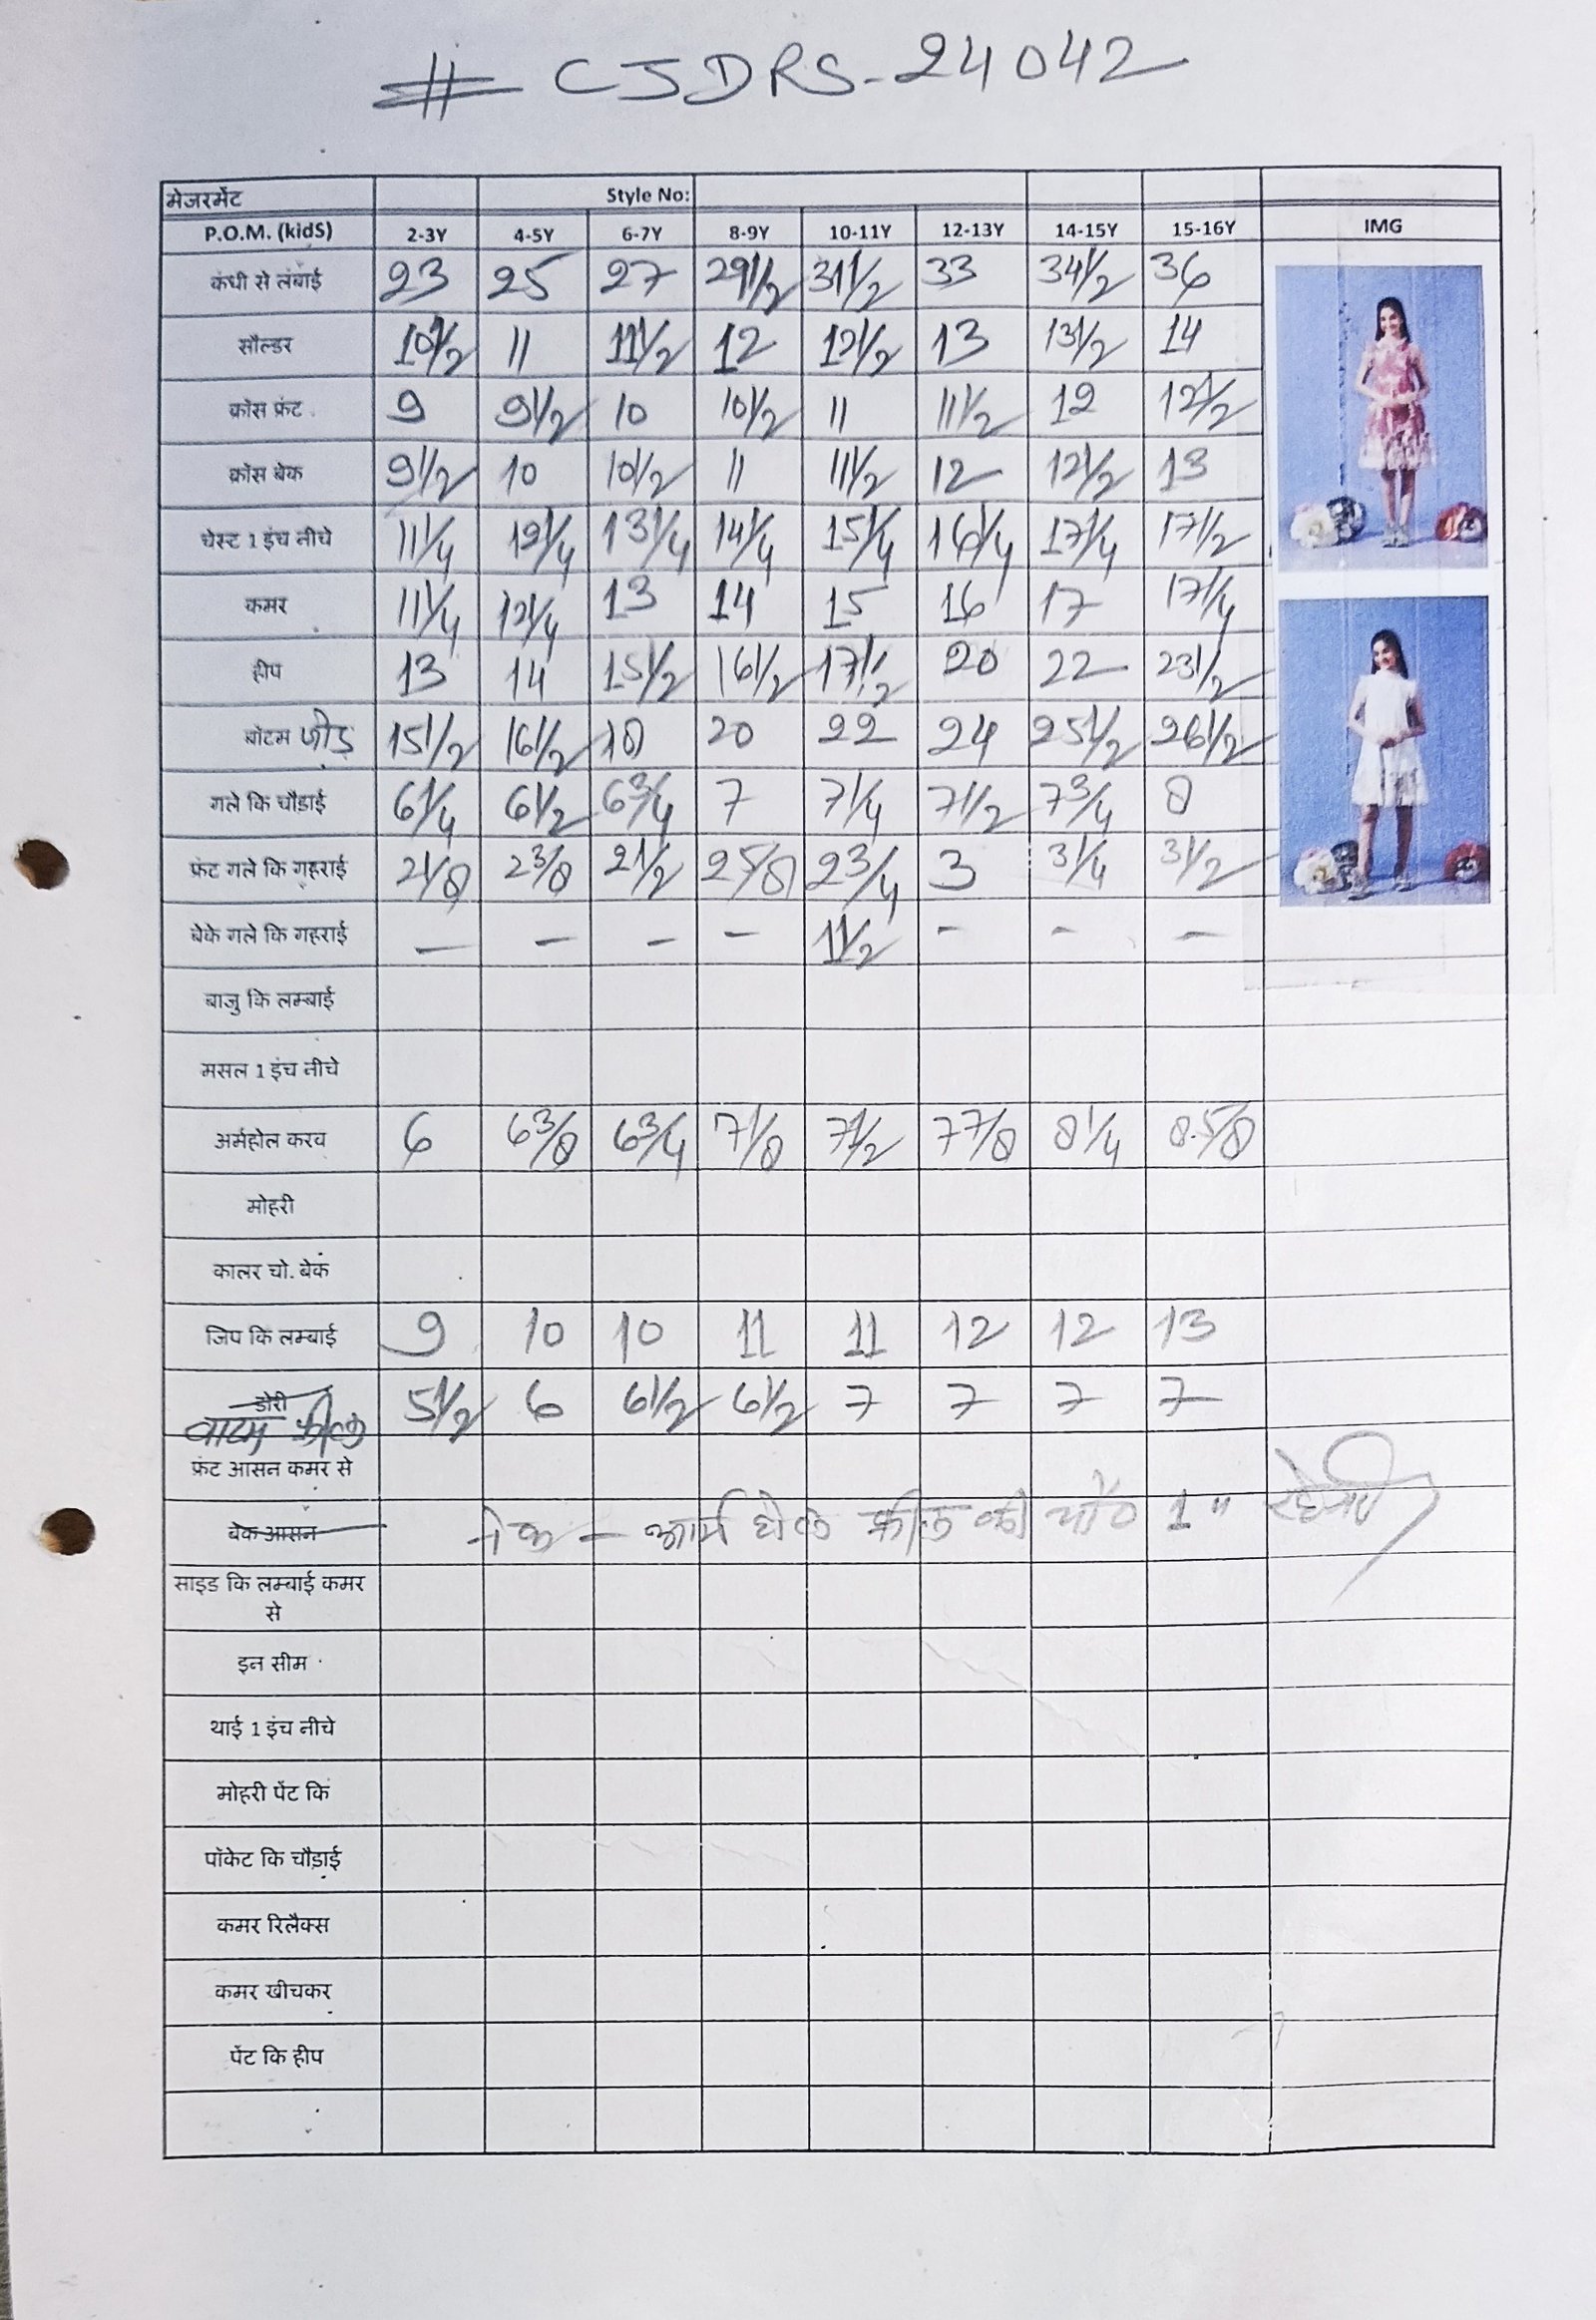 # CJDRS-24042
मेजरमेंट Style No:
P.O.M. (kidS) 2-3Y 4-5Y 6-7Y 8-9Y 10-11Y 12-13Y 14-15Y 15-16Y IMG
कंधी से लंबाई 23 25 27 29 1/2 31 1/2 33 34 1/2 36
सौल्डर 10 1/2 11 11 1/2 12 12 1/2 13 13 1/2 14
क्रॉस फ्रंट 9 9 1/2 10 10 1/2 11 11 1/2 12 12 1/2
क्रॉस बेक 9 1/2 10 10 1/2 11 11 1/2 12 12 1/2 13
चेस्ट 1 इंच नीचे 11 1/4 12 1/4 13 1/4 14 1/4 15 1/4 16 1/4 17 1/4 17 1/2
कमर 11 1/4 12 1/4 13 14 15 16 17 17 1/4
हीप 13 14 15 1/2 16 1/2 17 1/2 20 22 23 1/2
बॉटम जोड़ 15 1/2 16 1/2 18 20 22 24 25 1/2 26 1/2
गले कि चौडाई 6 1/4 6 1/2 6 3/4 7 7 1/4 7 1/2 7 3/4 8
फ्रंट गले कि गहराई 2 1/8 2 3/8 2 1/2 2 5/8 2 3/4 3 3 1/4 3 1/2
बेके गले कि गहराई – – – – 1 1/2 – – –
बाजु कि लम्बाई
मसल 1 इंच नीचे
अर्महोल करव 6 6 3/8 6 3/4 7 1/8 7 1/2 7 7/8 8 1/4 8.5/8
मोहरी
कालर चो. बेक
जिप कि लम्बाई 9 10 10 11 11 12 12 13
डोरी
बाटम फ्रील 5 1/2 6 6 1/2 6 1/2 7 7 7 7
फ्रंट आसन कमर से
बेक आसन नेक – आर्म होल फ्रील की चौ० 1"
साइड कि लम्बाई कमर
से
इन सीम
थाई 1 इंच नीचे
मोहरी पेंट कि
पॉकेट कि चौड़ाई
कमर रिलैक्स
कमर खीचकर
पेंट कि हीप